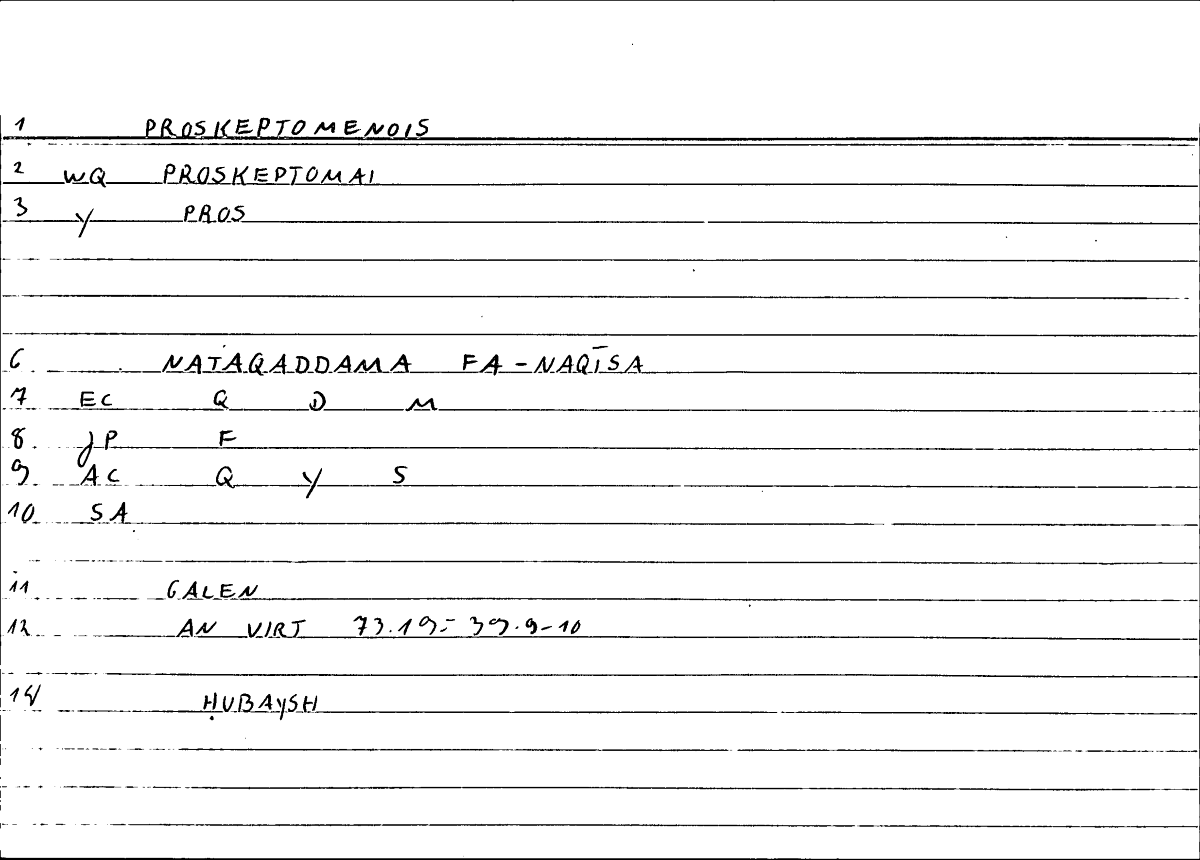 1 PROSKEPTOMENOIS
2 WQ PROSKEPTOMAI
3 Y PROS
6 NATAQADDAMA FA-NAQĪSA
7 EC Q D M
8 JP F
9 AC Q Y S
10 SA
11 GALEN
12 AN VIRT 73.19 = 39.9-10
14 ḤUBAYSH